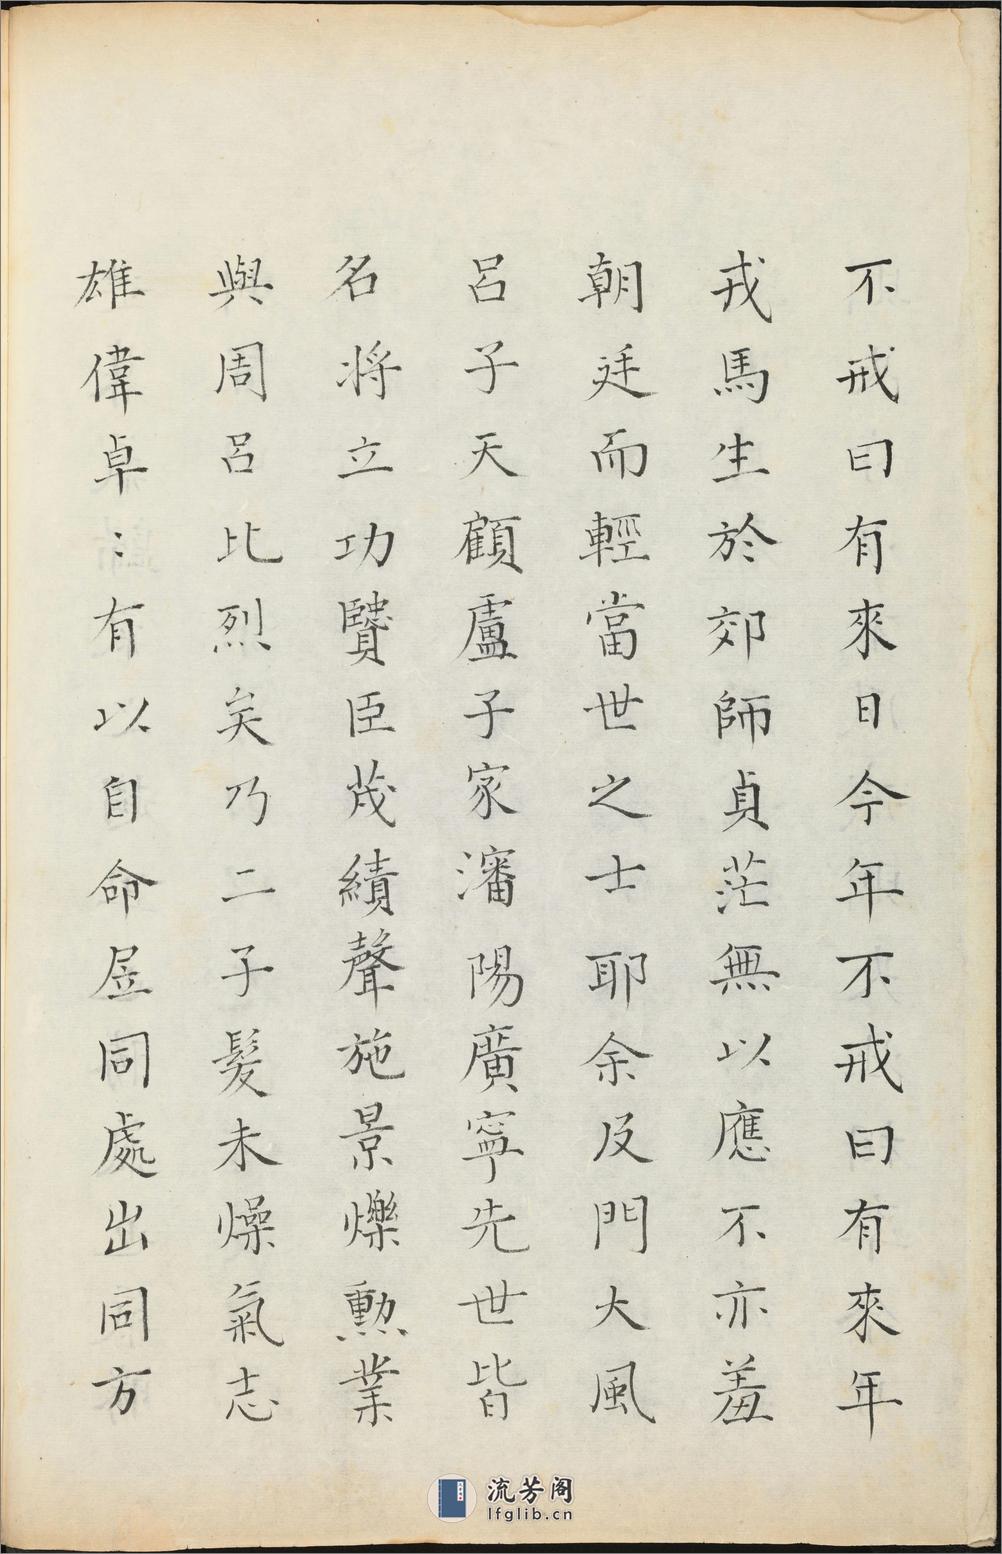 不戒曰有來日今年不戒曰有來年
戎馬生於郊師貞茫無以應不亦羞
朝廷而輕當世之士耶余及門大風
呂子天顧盧子家瀋陽廣寧先世皆
名將立功賢臣茂績聲施景爍勲業
與周呂比烈矣乃二子髮未燥氣志
雄偉卓〻有以自命居同處出同方
流芳阁
lfglib.cn